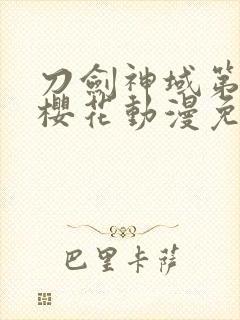 刀劍神域第
櫻花動漫免
巴里卡薩